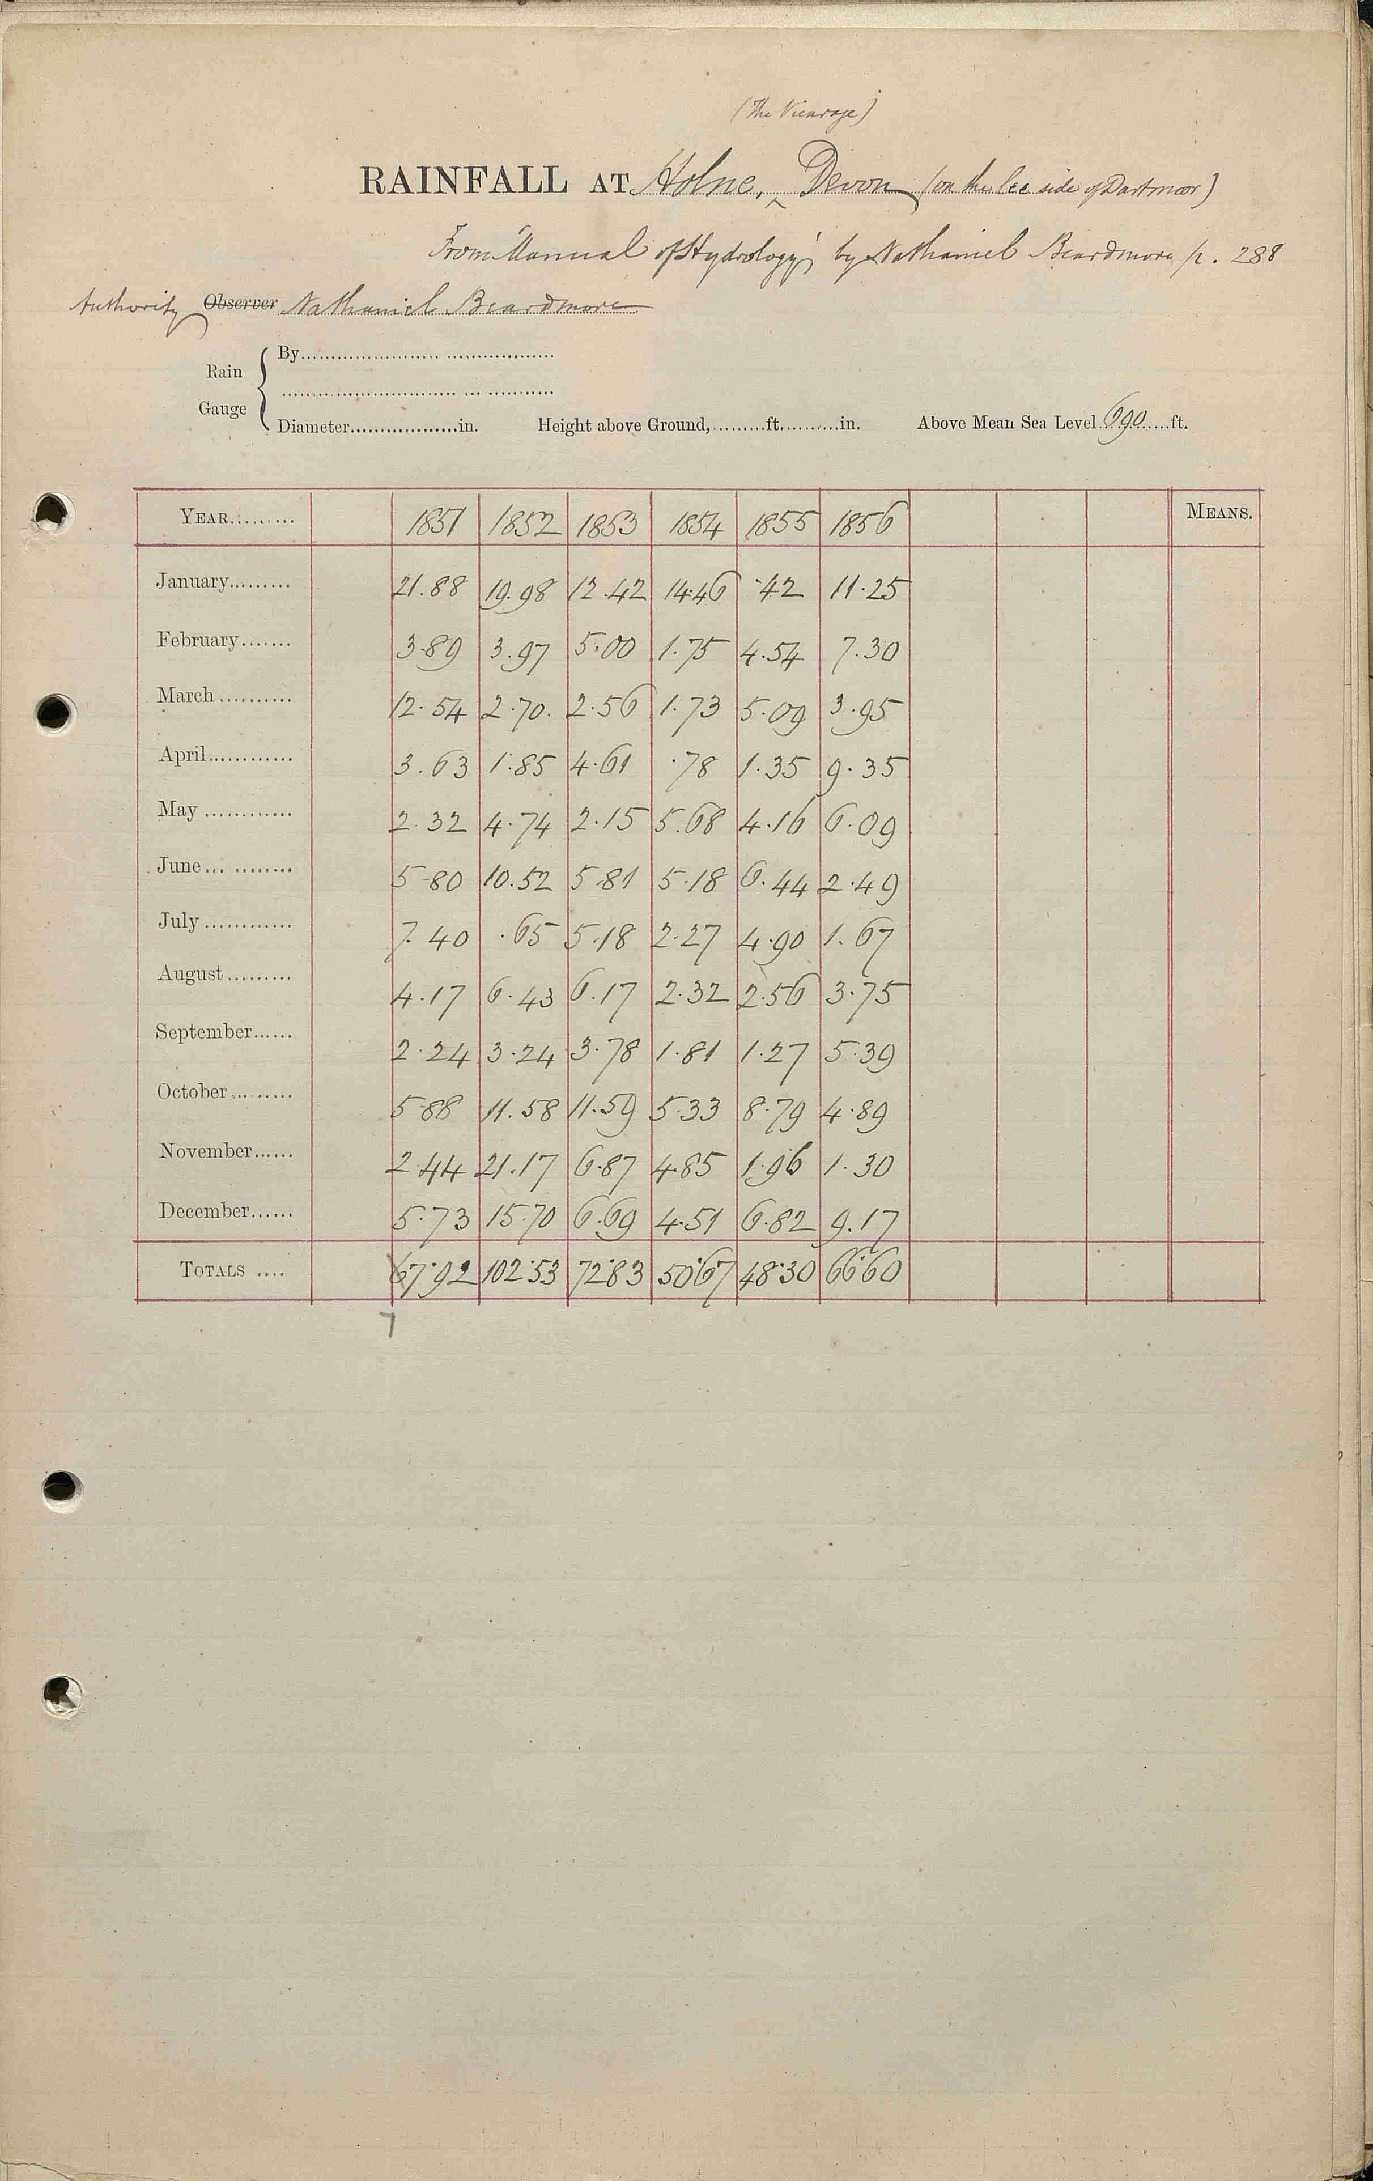 (The Vicarage)
RAINFALL AT Holne, ^ Devon (on the lee side of Dartmoor)
From "Manual of Hydrology" by Nathaniel Beardmore p. 288
Authority Observer Nathaniel Beardmore
Rain Gauge { By
Diameter in. Height above Ground, ft. in. Above Mean Sea Level 690 ft.
YEAR 1851 1852 1853 1854 1855 1856 MEANS.
January 21.88 19.98 12.42 14.46 .42 11.25
February 3.89 3.97 5.00 1.75 4.54 7.30
March 12.54 2.70 2.56 1.73 5.09 3.95
April 3.63 1.85 4.61 .78 1.35 9.35
May 2.32 4.74 2.15 5.68 4.16 6.09
June 5.80 10.52 5.81 5.18 6.44 2.49
July 7.40 .65 5.18 2.27 4.90 1.67
August 4.17 6.43 6.17 2.32 2.56 3.75
September 2.24 3.24 3.78 1.81 1.27 5.39
October 5.88 11.58 11.59 5.33 8.79 4.89
November 2.44 21.17 6.87 4.85 1.96 1.30
December 5.73 15.70 6.69 4.51 6.82 9.17
TOTALS 67.92 102.53 72.83 50.67 48.30 66.60
7